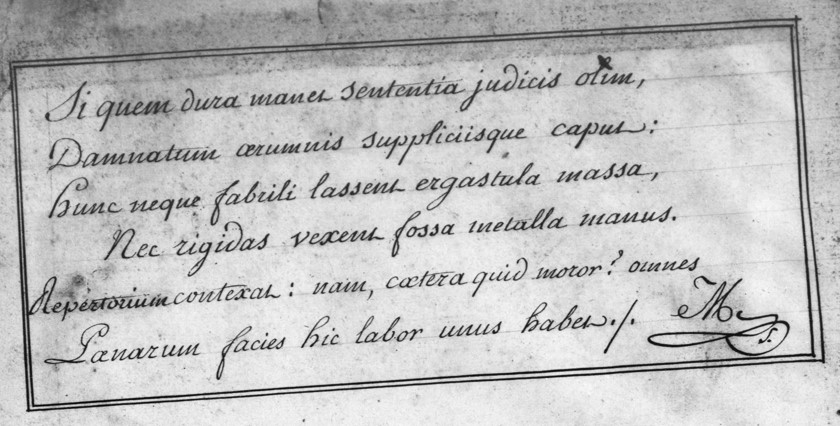 Si quem dura manet sententia judicis olim,
Damnatum ærumnis suppliciisque caput:
Hunc neque fabrili lassent ergastula massa,
Nec rigidas vexent fossa metalla manus.
Repertorium contexat: nam, cætera quid moror? omnes
Pœnarum facies hic labor unus habet./. M
s.